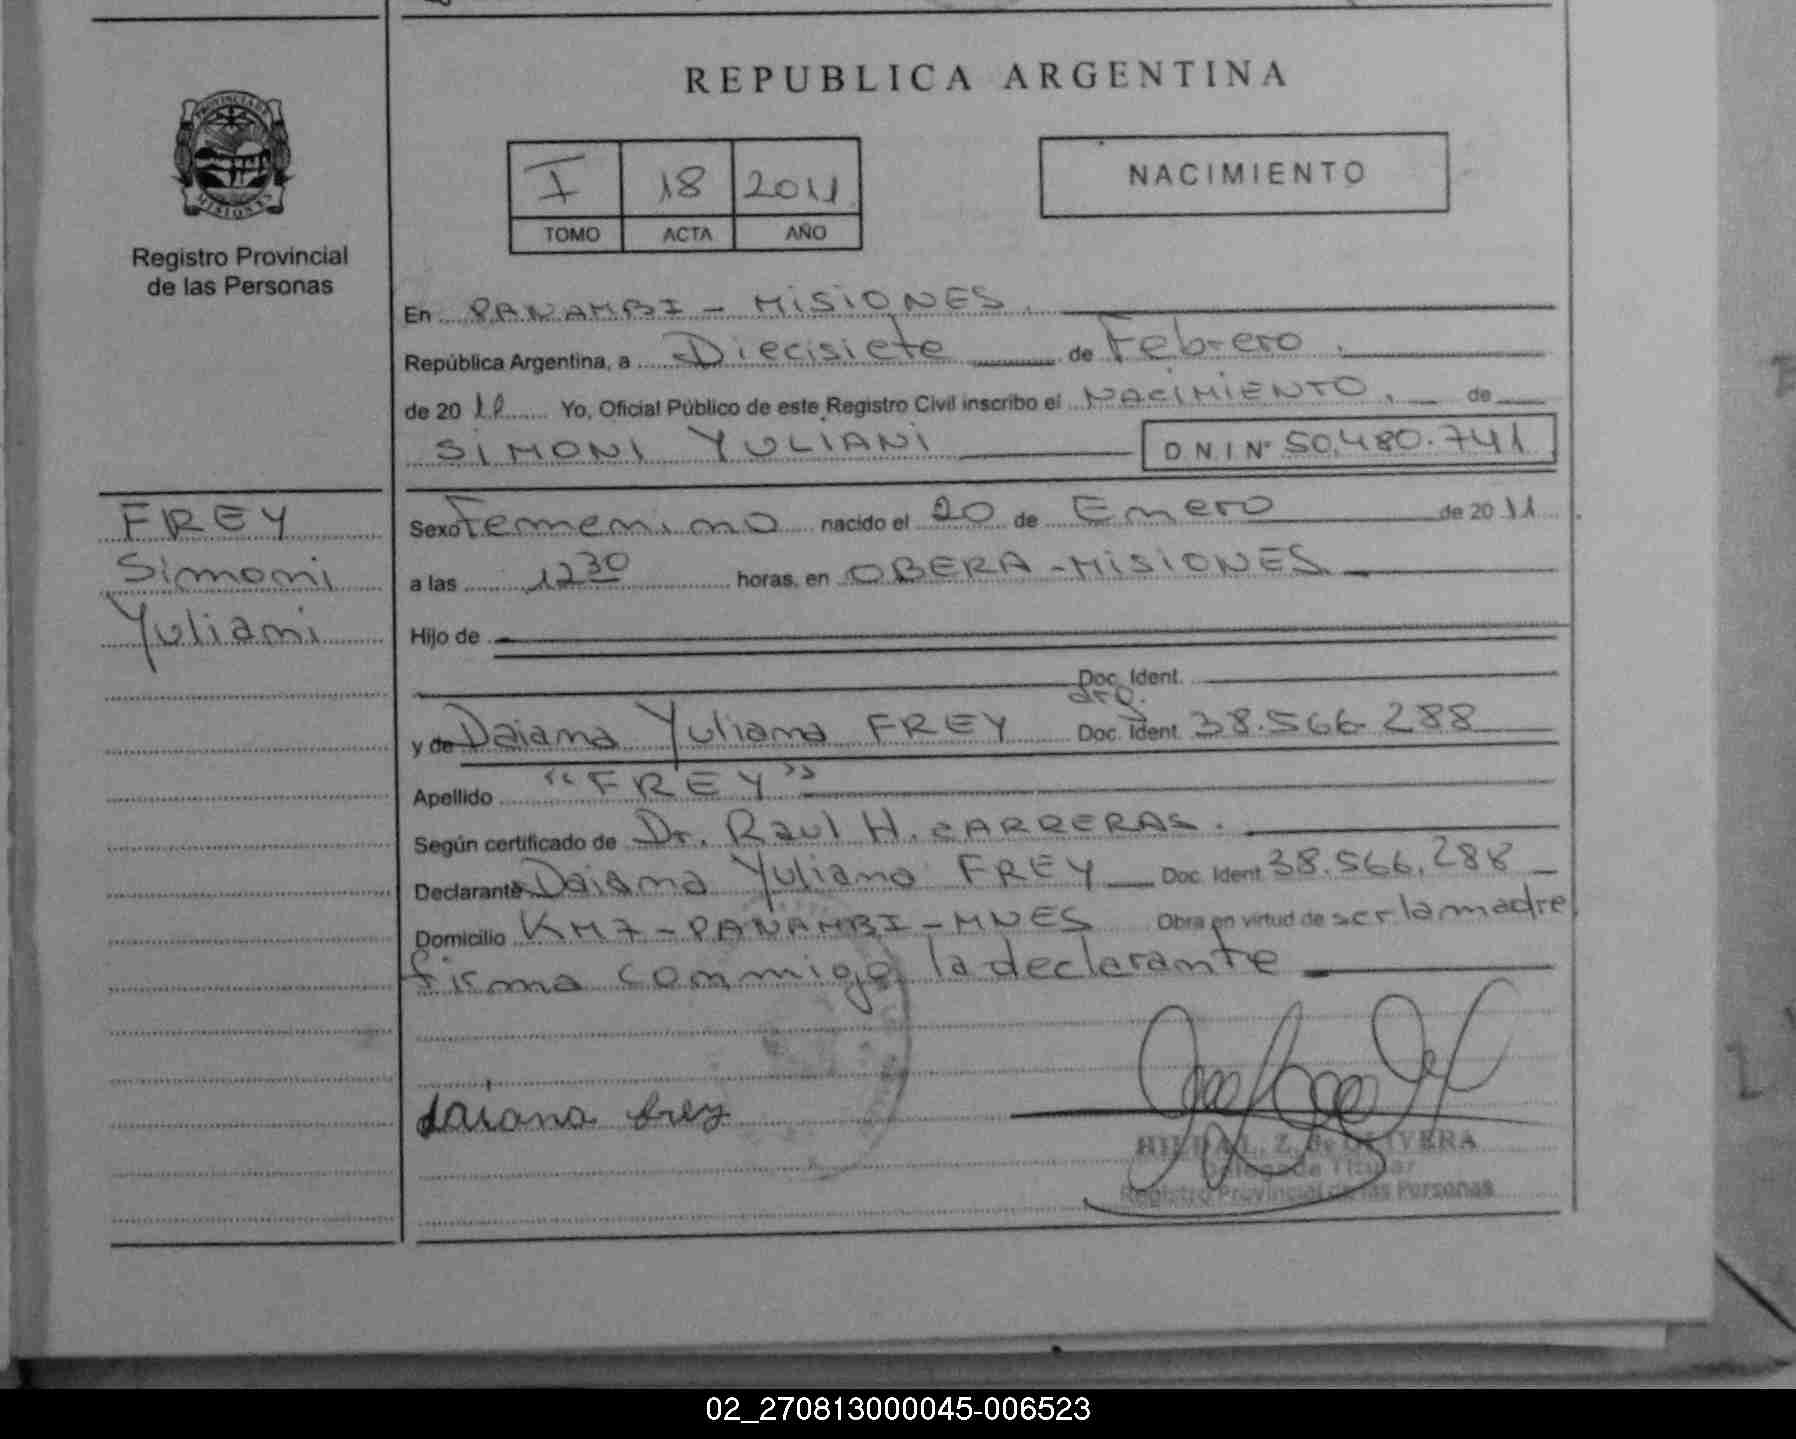 REPUBLICA ARGENTINA
PROVINCIA DE
MISIONES
Registro Provincial
de las Personas
I 18 2011
TOMO ACTA AÑO
NACIMIENTO
En PANAMBI - MISIONES.
República Argentina, a Diecisiete de Febrero.
de 20 11 Yo, Oficial Público de este Registro Civil inscribo el NACIMIENTO, de
SIMONI YULIANI D N I Nº 50.480.741
FREY
Simoni
Yuliani
Sexo Femenino nacido el 20 de Enero de 20 11
a las 12 30 horas, en OBERA - MISIONES
Hijo de
Doc. Ident.
arg.
y de Daiana Yuliana FREY Doc. Ident. 38.566.288
Apellido "FREY"
Según certificado de Dr. Raul H. CARRERAS.
Declarante Daiana Yuliana FREY Doc. Ident. 38.566.288
Domicilio KM7 - PANAMBI - MNES Obra en virtud de ser la madre.
firma conmigo la declarante
daiana frey
HILDA L. Z. de OLIVERA
Delegada Titular
Registro Provincial de las Personas
02_270813000045-006523